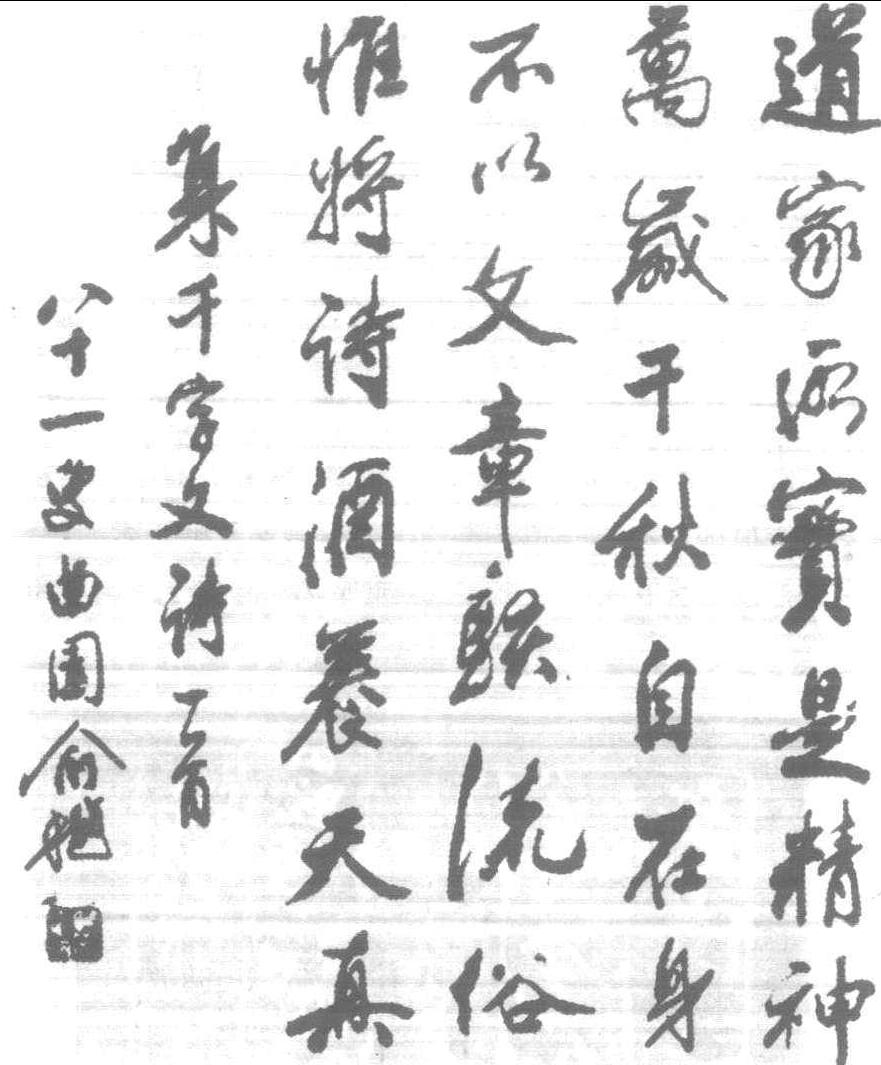 道家所寶是精神
萬歲千秋自在身
不以文章駭流俗
惟將詩酒養天真
集千字文詩一首
八十一叟曲園俞樾